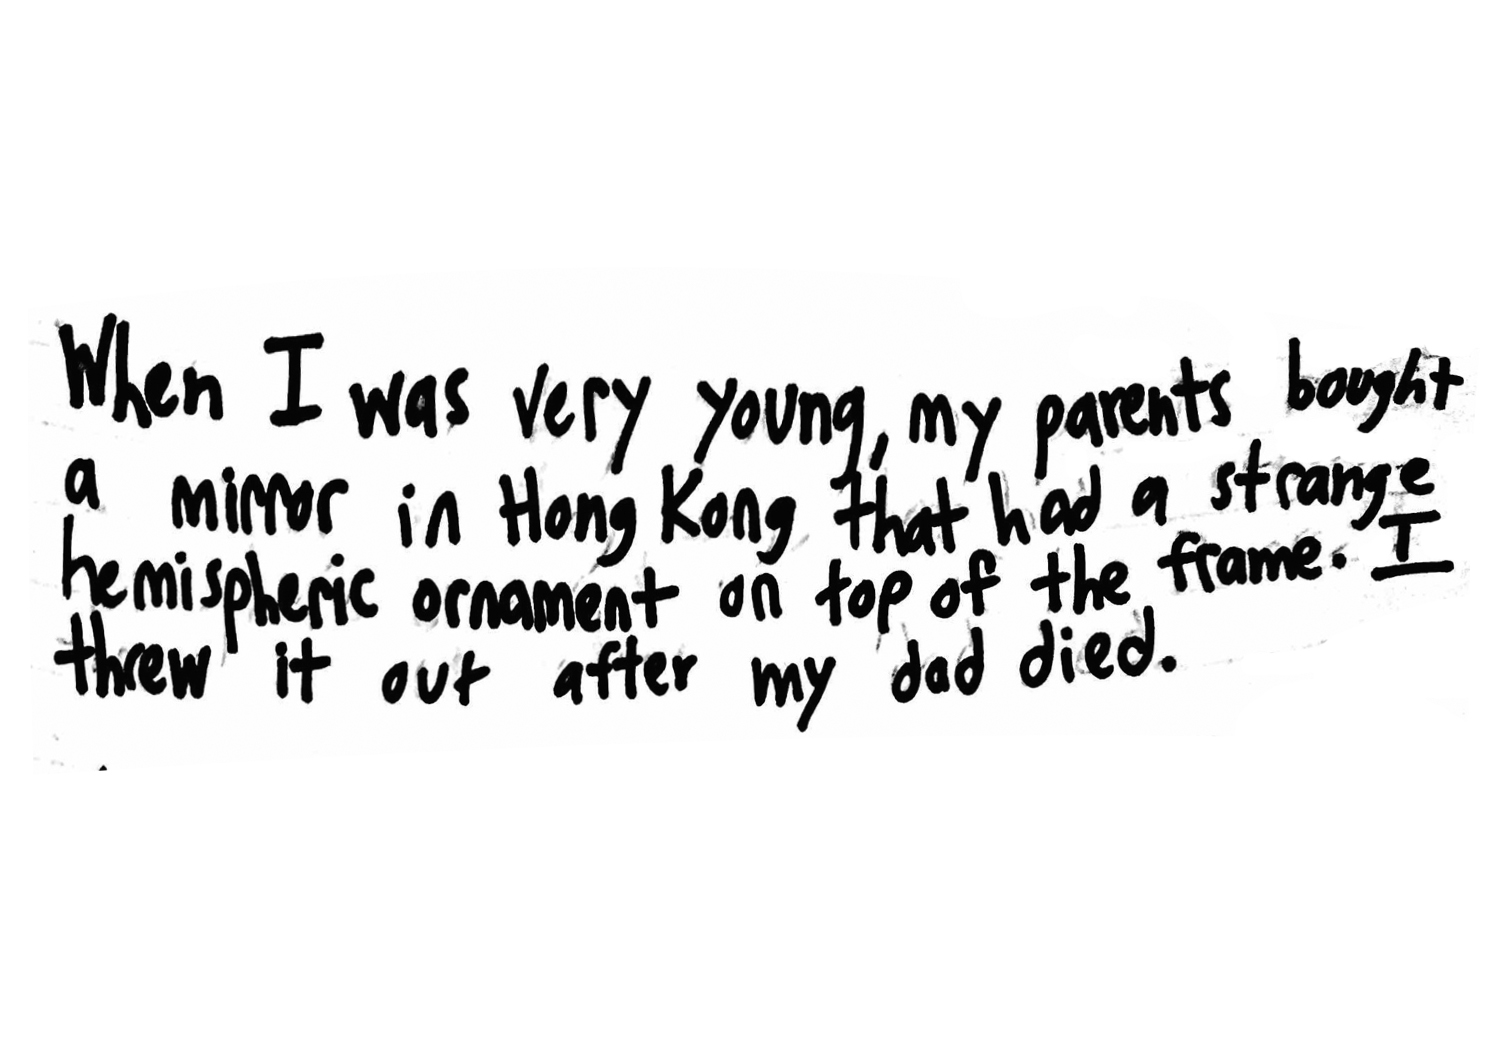 When I was very young, my parents bought
a mirror in Hong Kong that had a strange
hemispheric ornament on top of the frame. I
threw it out after my dad died.